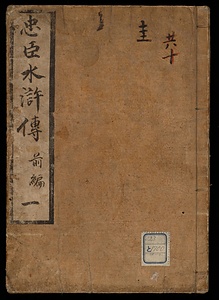 忠臣水滸傳 前編 一
共十